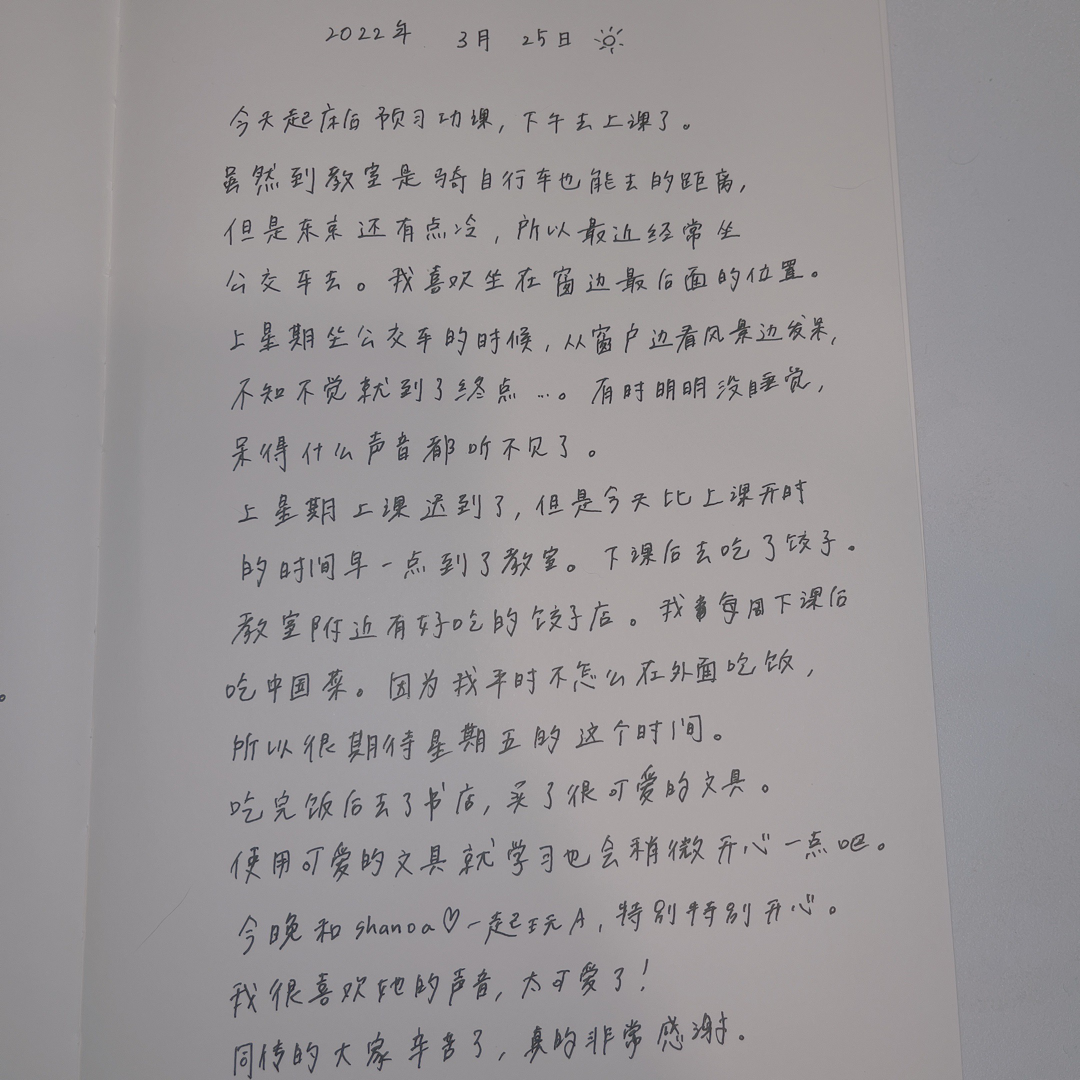 2022年 3月 25日
今天起床后预习功课，下午去上课了。
虽然到教室是骑自行车也能去的距离，
但是东京还有点冷，所以最近经常坐
公交车去。我喜欢坐在窗边最后面的位置。
上星期坐公交车的时候，从窗户边看风景边发呆，
不知不觉就到了终点…。有时明明没睡觉，
呆得什么声音都听不见了。
上星期上课迟到了，但是今天比上课开时
的时间早一点到了教室。下课后去吃了饺子。
教室附近有好吃的饺子店。我每周下课后
吃中国菜。因为我平时不怎么在外面吃饭，
所以很期待星期五的这个时间。
吃完饭后去了书店，买了很可爱的文具。
使用可爱的文具就学习也会稍微开心一点吧。
今晚和shanoa♡一起玩A，特别特别开心。
我很喜欢她的声音，太可爱了！
同传的大家辛苦了，真的非常感谢。